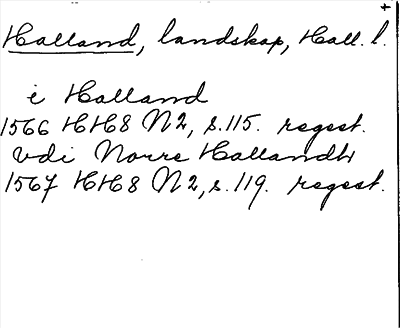 +
Halland, landskap, Hall. l.
i Halland
1566 HH8 N2, s. 115. regest.
vdi Norre Hallandh
1567 HH8 N2, s. 119. regest.